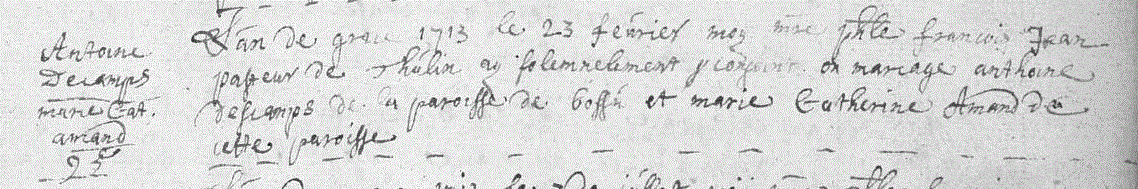 Antoine
Decamps
marie Cat.
amand
L'an de grace 1713 le 23 février moy mre phle francois Jean
pasteur de Thulin ay solemnelement conjoint en mariage anthoine
descamps de la paroisse de bossu et marie Catherine Amand de
cette paroisse